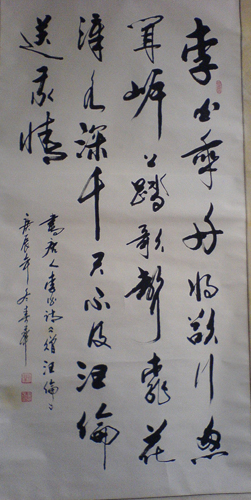 李白乘舟将欲行忽
闻岸上踏歌聲桃花
潭水深千尺不及汪倫
送我情
書唐人李白詩赠汪倫
庚辰年